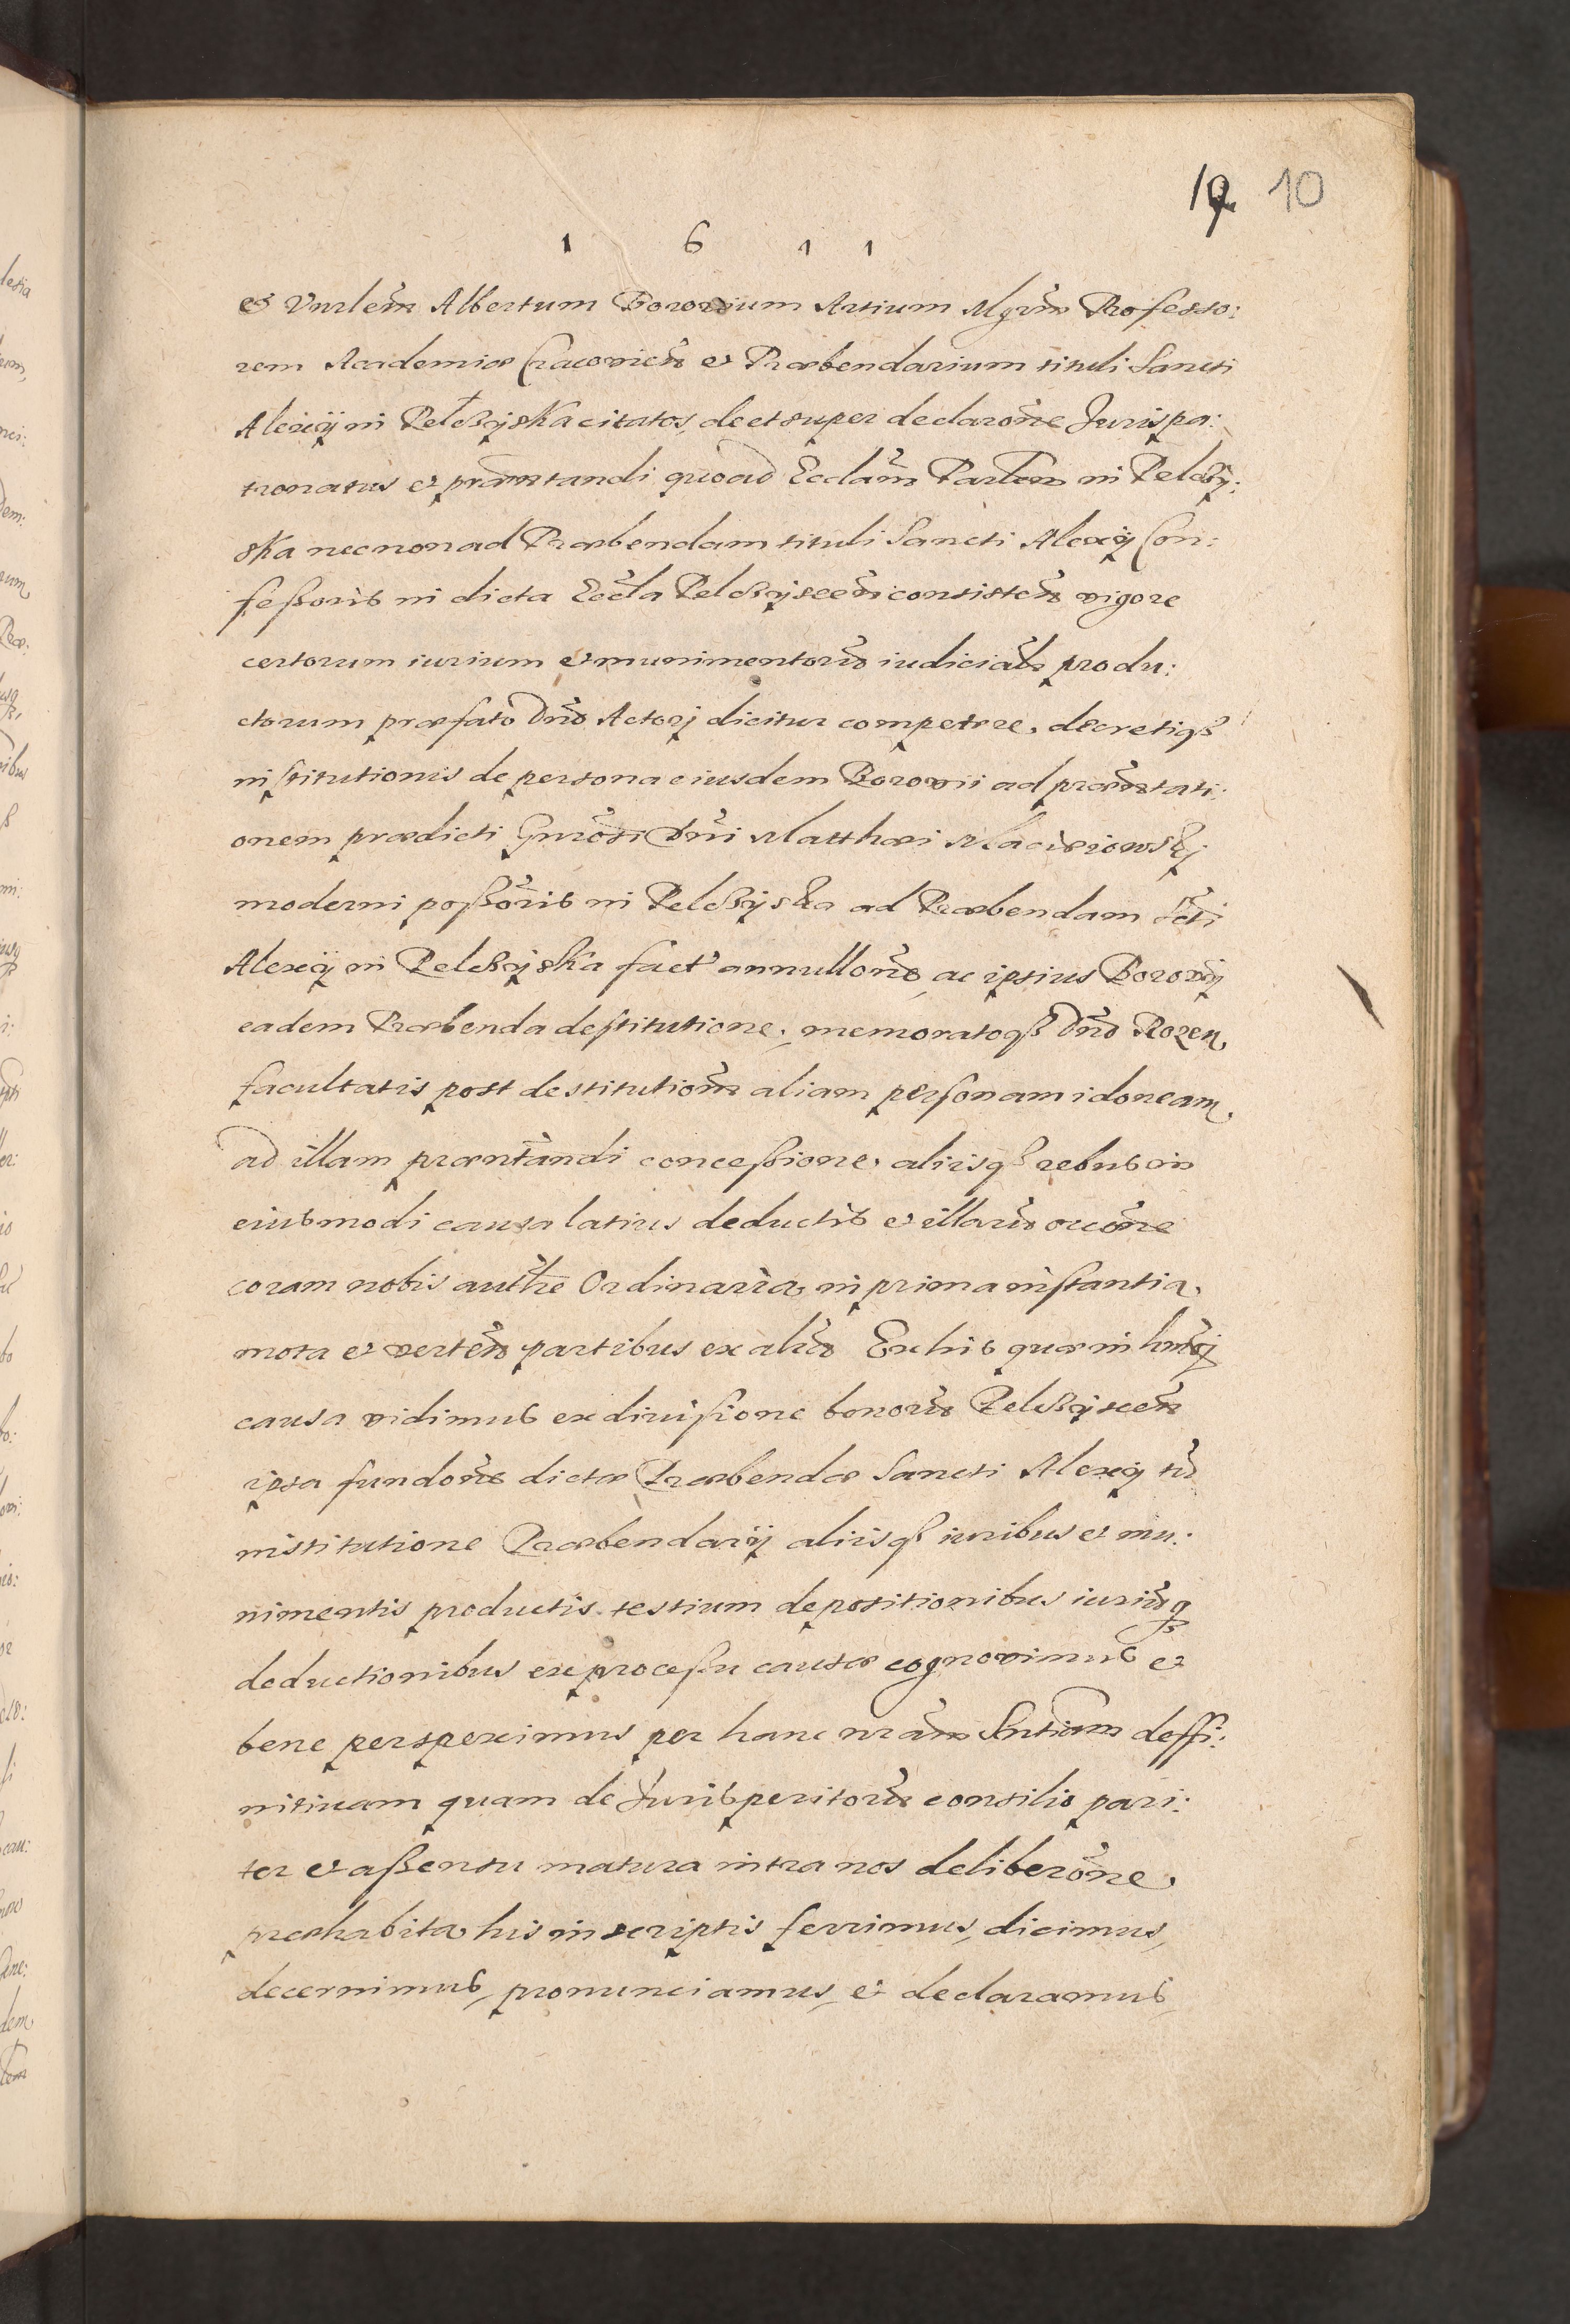 10 10
1 6 1 1
et Vnrlem Albertum Borouium Artium Mgrm Professo:
rem Academiæ Cracovien et Præbendarium tituli Sancti
Alexij in Pelczyska citatos, de et super declarone Juris pa:
tronatus et præntandi quoad Ecclam Parlem in Pelczÿ:
ska nec non ad Præbendam tituli Sancti Alexij Con:
feßoris in dicta Eccla Pelczyscen consisten vigore
certorum iurium et munimentoru iudicialr produ:
ctorum præfato Dno Actorj dicitur competere, decretiqß
institutionis de persona eiusdem Borouii ad præntati:
onem prædicti Gnrosi Dni Matthæi Macieiowskj
moderni poßoris in Pelczyska ad Præbendam Scti
Alexij in Pelczyska fact annullone, ac ipsius Borouij
eadem Præbenda destitutione, memoratoqß Dno Rozen,
facultatis post destitutionem aliam personam idoneam,
ad illam præntandi conceßione, aliisqß rebus in
eiusmodi causa latius deductis et illaru occone
coram nobis authe Ordinaria, in prima instantia,
mota et verten partibus ex alia Ex his quæ in hmoj
causa vidimus ex diuisione bonoru Pelczyscen
ipsa fundone dictæ Præbendæ Sancti Alexij tu
institutione Præbendarij aliisqß iuribus et mu:
nimentis productis testium depositionibus iuriuqß
deductionibus ex proceßu causæ cognovimus et
bene perspeximus per hanc nram Sntiam deffi:
nitiuam quam de Jurisperitoru consilio pari:
ter et aßensu matura intra nos deliberone,
præhabita, his in scriptis ferrimus, dicimus,
decernimus, pronunciamus, et declaramus,